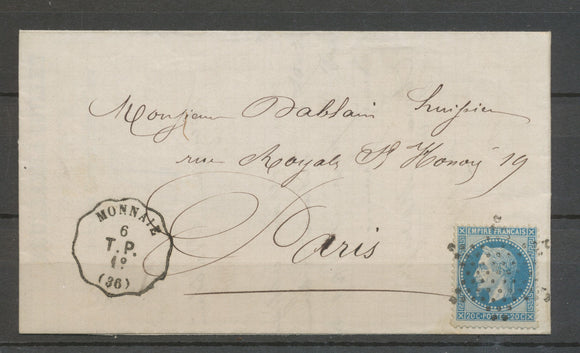 Monsieur Dablain huissier
rue Royale St Honoré 19
Paris
MONNAIE
6
T.P.
1º
(36)
EMPIRE FRANÇAIS
20C POSTES 20C